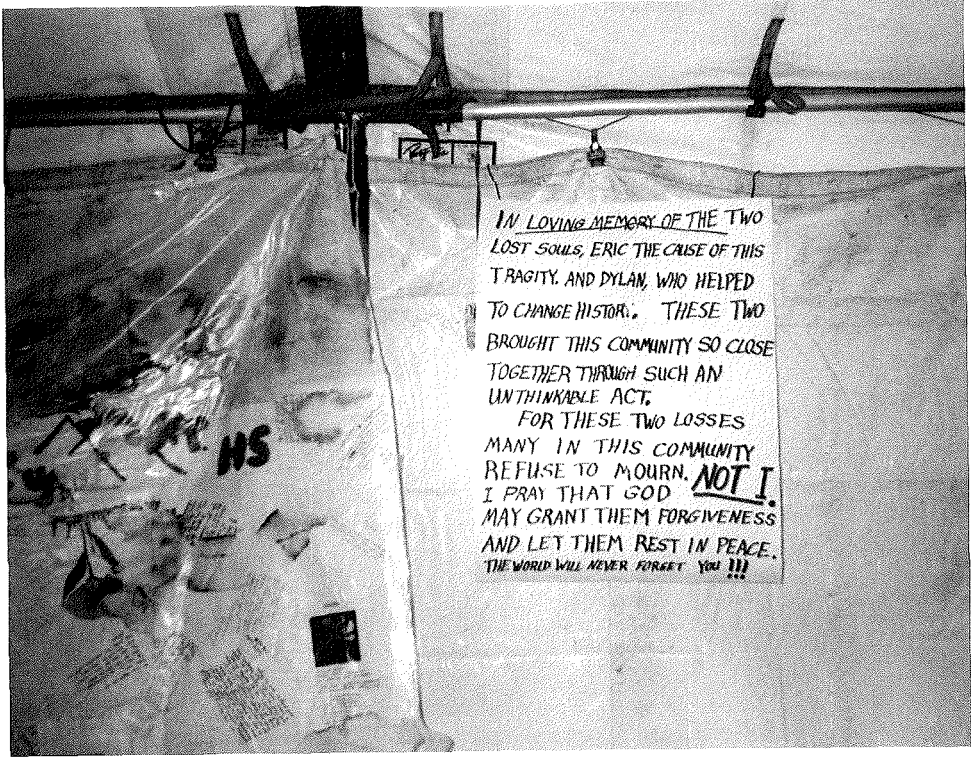 IN LOVING MEMORY OF THE TWO
LOST SOULS, ERIC THE CAUSE OF THIS
TRAGITY. AND DYLAN, WHO HELPED
TO CHANGE HISTORY. THESE TWO
BROUGHT THIS COMMUNITY SO CLOSE
TOGETHER THROUGH SUCH AN
UNTHINKABLE ACT.
FOR THESE TWO LOSSES
MANY IN THIS COMMUNITY
REFUSE TO MOURN. NOT I.
I PRAY THAT GOD
MAY GRANT THEM FORGIVENESS
AND LET THEM REST IN PEACE.
THE WORLD WILL NEVER FORGET YOU !!!
HS